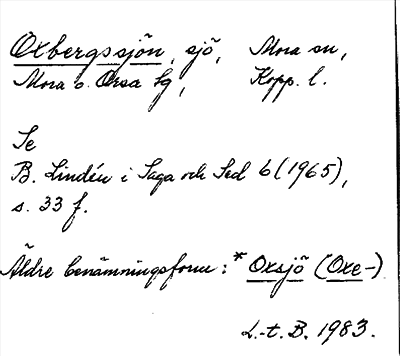 Oxbergssjön, sjö, Mora sn,
Mora o. Orsa tg, Kopp. l.
Se
B. Lindén i Saga och Sed 6 (1965),
s. 33 f.
Äldre benämningsform: *Oxsjö (Oxe-)
L.-t. B. 1983.